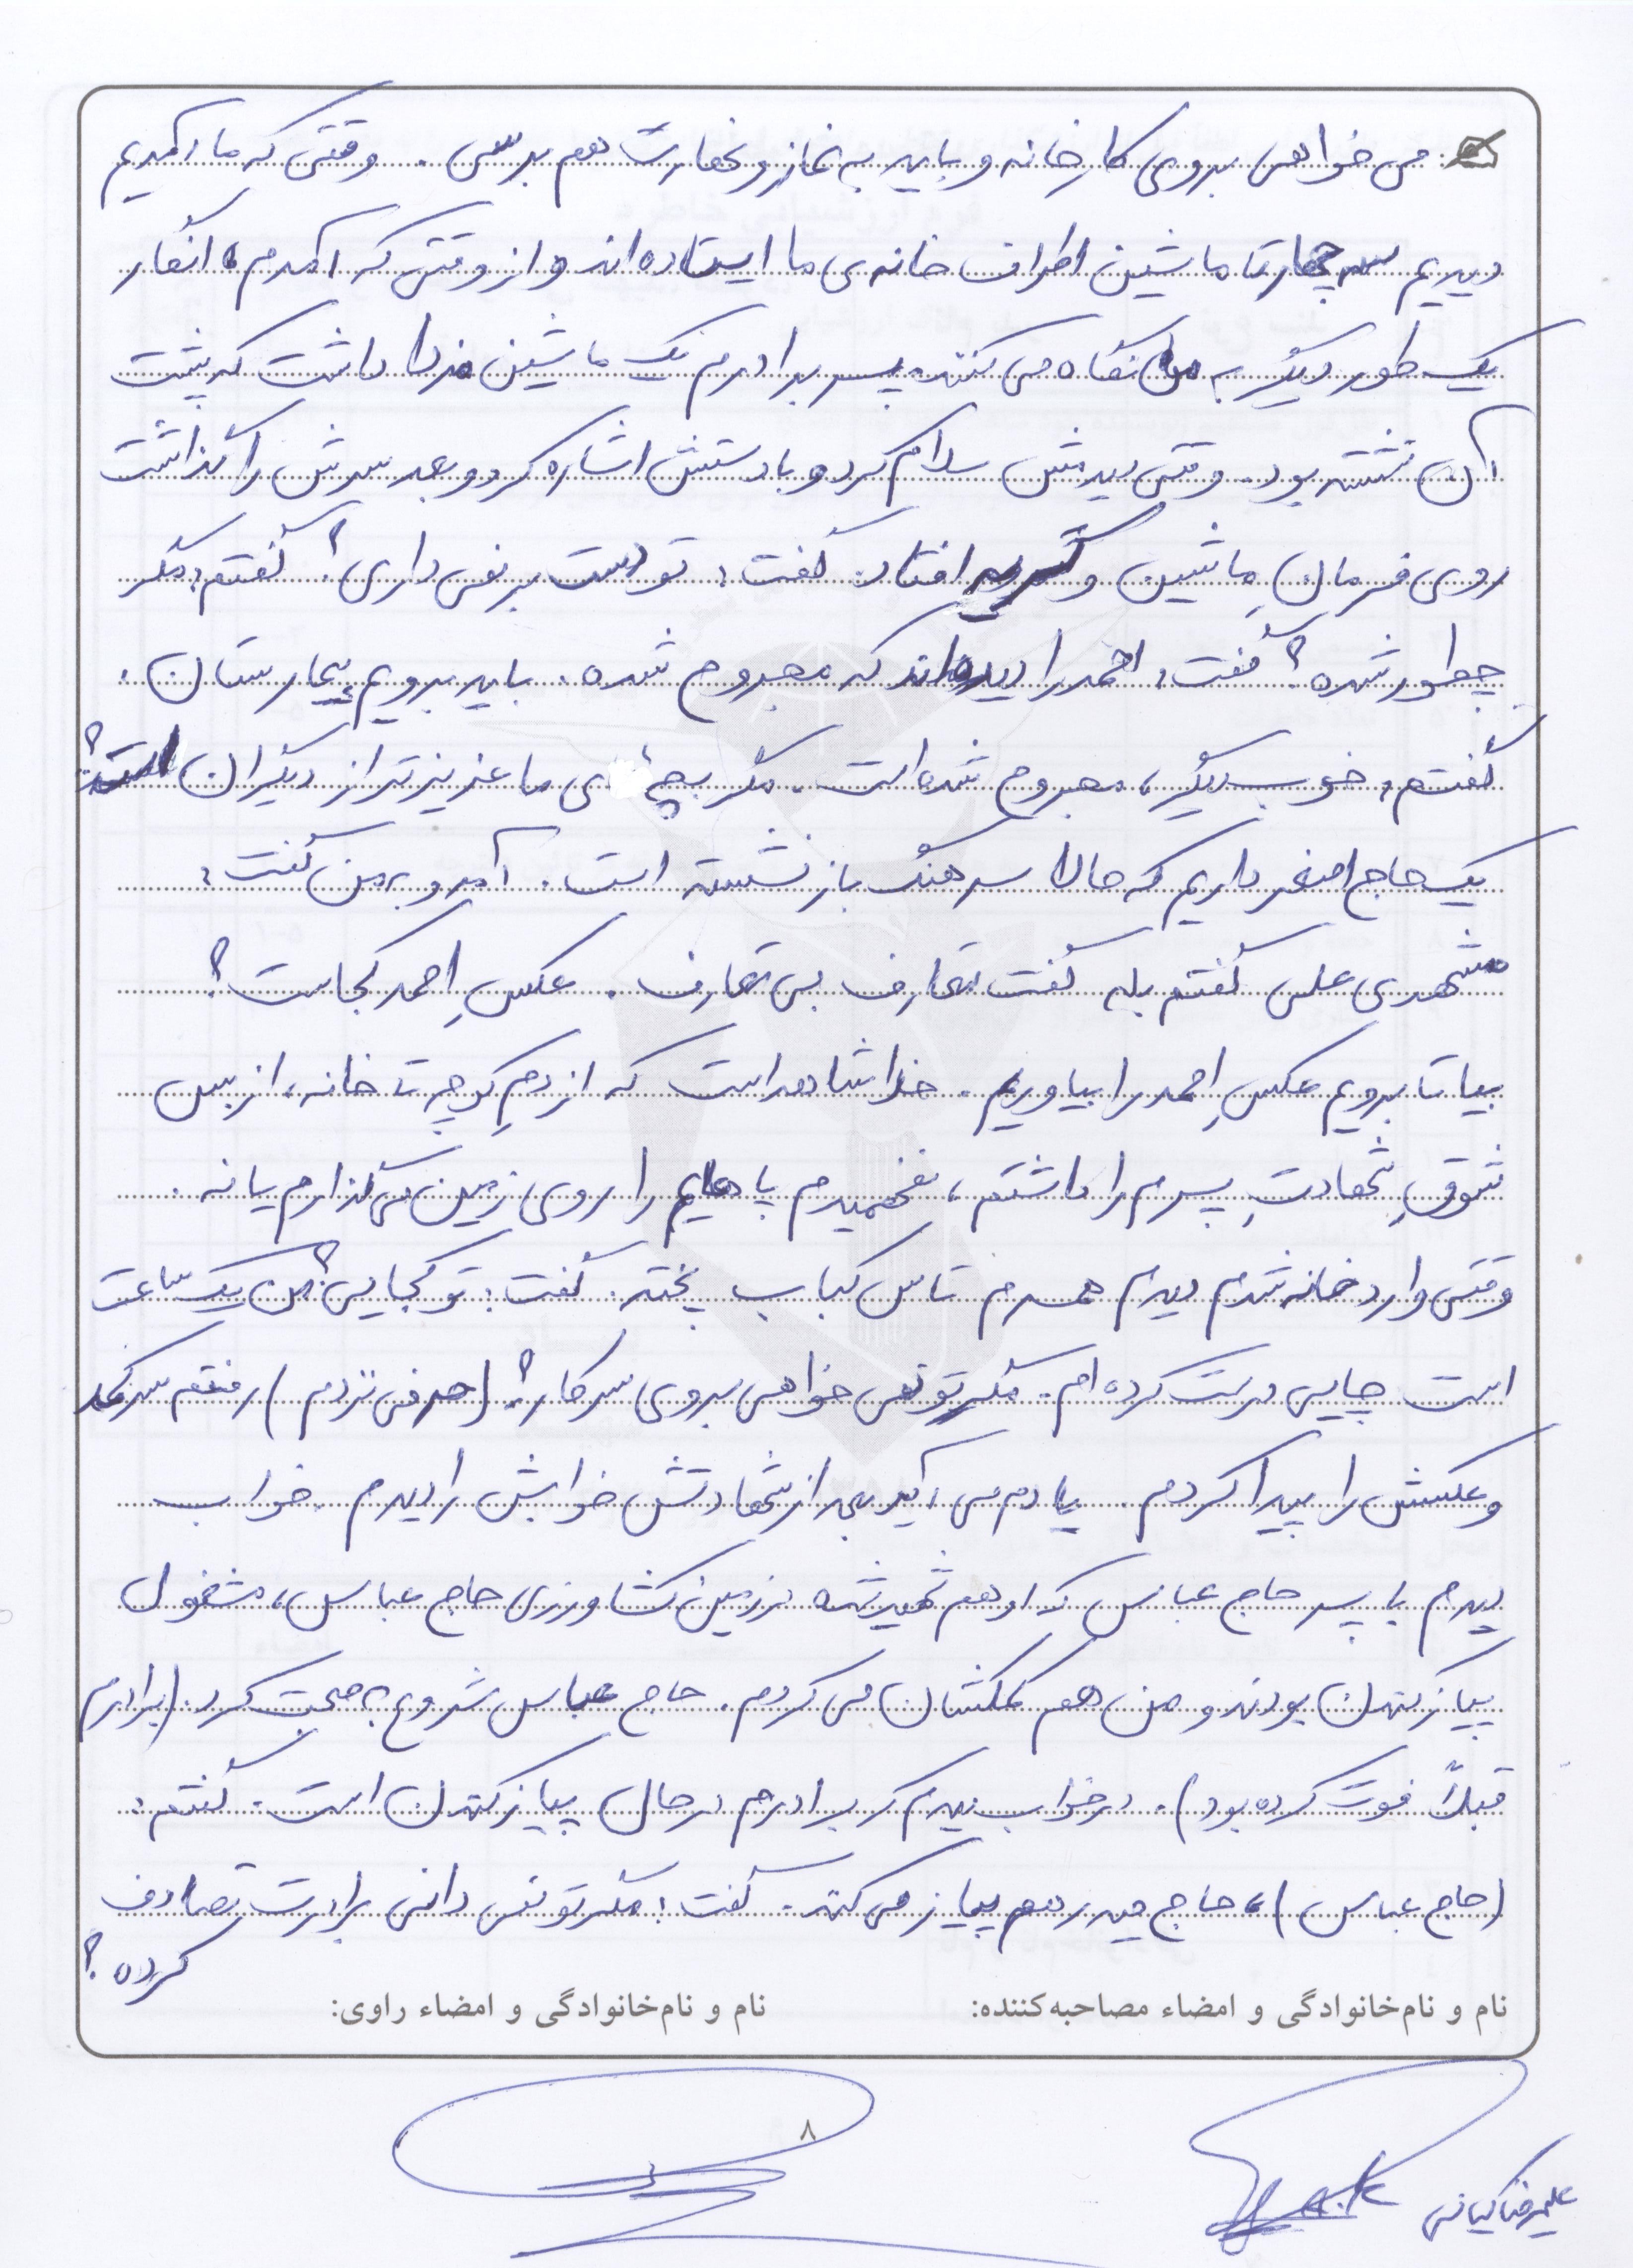 می خواهی بروی کارخانه و باید به نماز و نهارت هم برسی. وقتی که ما آمدیم
دیدیم سه چهار تا ماشین اطراف خانه ی ما ایستاده اند و از وقتی که آمدم، انگار
یک طور دیگر به ما نگاه می کنند. پسر برادرم یک ماشین مزدا داشت که پشت
آن نشسته بود. وقتی دیدمش سلام کرد و با دستش اشاره کرد و بعد سرش را گذاشت
روی فرمانِ ماشین و گریه افتاد. گفت: تو دست بر نمی داری؟ گفتم: مگر
چطور شده؟ گفت: احمد را دیده اند که مجروح شده. باید برویم بیمارستان.
گفتم: خوب دیگر، مجروح شده است. مگر بچهٔ ی ما عزیزتر از دیگران است؟
یک حاج اصغر داریم که حالا سرهنگ بازنشسته است. آمد و به من گفت:
مشهدی علی گفتم بله گفت تعارف بی تعارف. عکسِ احمد کجاست؟
بیا تا برویم عکسِ احمد را بیاوریم. خدا شاهد است که از دمِ کوچه تا خانه، از بس
شوقِ شهادتِ پسرم را داشتم، نفهمیدم پاهایم را روی زمین می گذارم یا نه.
وقتی وارد خانه شدم دیدم همسرم تاس کباب پخته. گفت: تو کجایی؟ من یک ساعت
است چایی درست کرده ام. مگر تو نمی خواهی بروی سر کار؟ (حرفی نزدم) رفتم سر کمد
و عکسش را پیدا کردم. یادم می آید بعد از شهادتش خوابش را دیدم. خواب
دیدم با پسر حاج عباس که او هم شهید شده در زمین کشاورزی حاج عباس، مشغول
پیاز کندن بودند و من هم کمکشان می کردم. حاج عباس شروع به صحبت کرد. (برادرم
قبلاً فوت کرده بود). در خواب دیدم که برادرم در حال پیاز کندن است. گفتم:
(حاج عباس)، حاج حیدر هم پیاز می کند. گفت: مگر تو نمی دانی برادرت تصادف
کرده؟
نام و نام خانوادگی و امضاء مصاحبه کننده: نام و نام خانوادگی و امضاء راوی:
۸
علیرضا کیانی